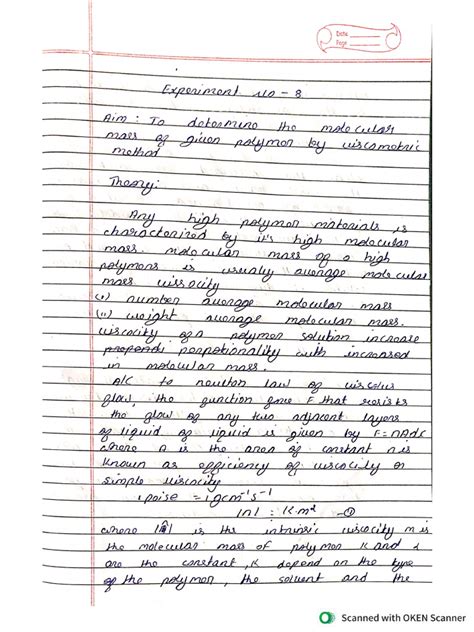 Date
Page
Experiment no - 8
Aim : To determine the molecular
mass of given polymer by viscometric
method
Theory:
Any high polymer materials is
characterized by it's high molecular
mass. molecular mass of a high
polymers is usually average molecular
mass viscocity
(i) number average molecular mass
(ii) weight average molecular mass.
viscocity of a polymer solution increase
porpotionality with increased
in molecular mass.
A/C to newton law of viscous
flow, the function force F that resists
the flow of any two adjacent layers
of liquid of liquid is given by
where n is the area of constant n is
known as efficiency of viscocity or
simple viscocity
1 poise = 1 gcm⁻¹s⁻¹
①
where is the intrinsic viscocity m is
the molecular mass of polymer K and α
are the constant, K depend on the type
of the polymer, the solvent and the
Scanned with OKEN Scanner